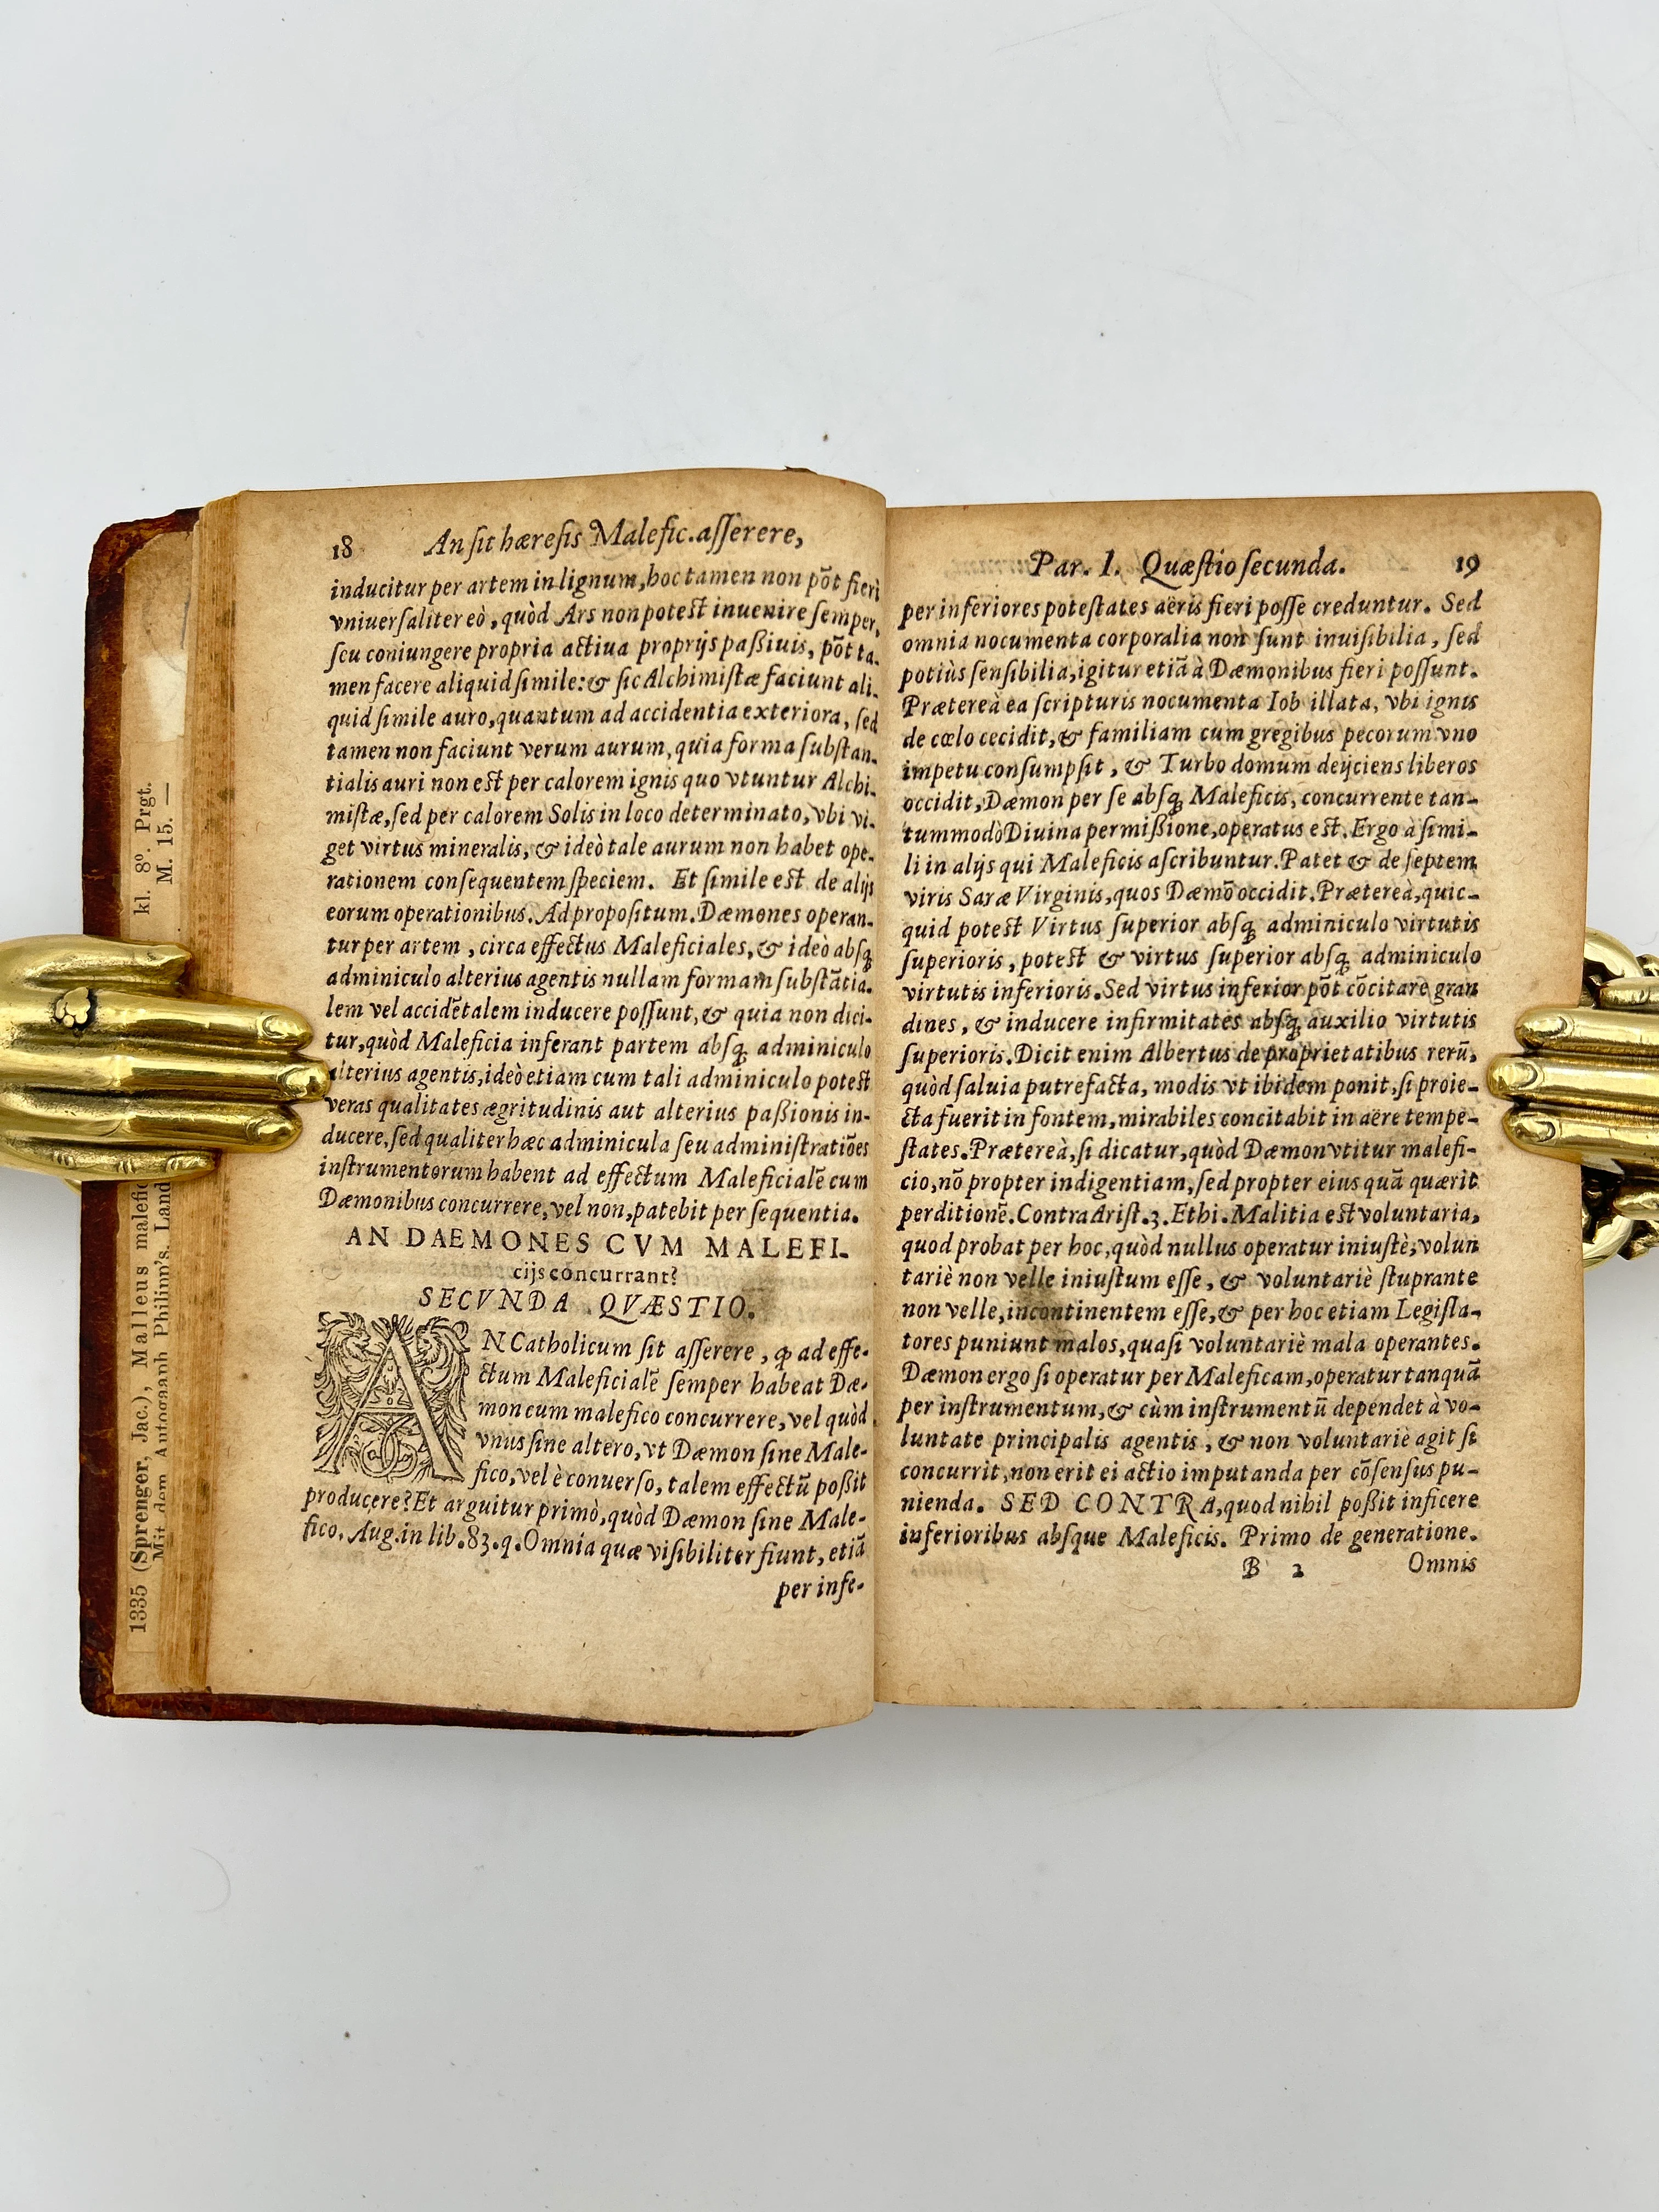 18 An ſit hæreſis Malefic. aſſerere,
inducitur per artem in lignum, hoc tamen non põt fieri
vniuerſaliter eò, quòd Ars non poteſt inuenire ſemper,
ſeu coniungere propria actiua proprijs paßiuis, põt ta-
men facere aliquid ſimile: & ſic Alchimiſtæ faciunt ali-
quid ſimile auro, quantum ad accidentia exteriora, ſed
tamen non faciunt verum aurum, quia forma ſubſtan-
tialis auri non eſt per calorem ignis quo vtuntur Alchi-
miſtæ, ſed per calorem Solis in loco determinato, vbi vi-
get virtus mineralis, & ideò tale aurum non habet ope-
rationem conſequentem ſpeciem. Et ſimile eſt de alijs
eorum operationibus. Ad propoſitum. Dæmones operan-
tur per artem, circa effectus Maleficiales, & ideò abſq;
adminiculo alterius agentis nullam formam ſubſtãtia-
lem vel accidẽtalem inducere poſſunt, & quia non dici-
tur, quòd Maleficia inferant partem abſq; adminiculo
alterius agentis, ideò etiam cum tali adminiculo poteſt
veras qualitates ægritudinis aut alterius paßionis in-
ducere, ſed qualiter hæc adminicula ſeu adminiſtratiões
inſtrumentorum habent ad effectum Maleficialẽ cum
Dæmonibus concurrere, vel non, patebit per ſequentia.
AN DAEMONES CVM MALEFI-
cijs concurrant?
SECVNDA QVÆSTIO.
AN Catholicum ſit aſſerere, ꝙ ad effe-
ctum Maleficialẽ ſemper habeat Dæ-
mon cum malefico concurrere, vel quòd
vnus ſine altero, vt Dæmon ſine Male-
fico, vel è conuerſo, talem effectũ poßit
producere? Et arguitur primò, quòd Dæmon ſine Male-
fico. Aug. in lib. 83. q. Omnia quæ viſibiliter fiunt, etiã
per infe-
Par. I. Quæſtio ſecunda. 19
per inferiores poteſtates aëris fieri poſſe creduntur. Sed
omnia nocumenta corporalia non ſunt inuiſibilia, ſed
potiùs ſenſibilia, igitur etiã à Dæmonibus fieri poſſunt.
Prætereà ea ſcripturis nocumenta Iob illata, vbi ignis
de cœlo cecidit, & familiam cum gregibus pecorum vno
impetu conſumpſit, & Turbo domum deijciens liberos
occidit, Dæmon per ſe abſq; Maleficis, concurrente tan-
tummodò Diuina permißione, operatus eſt. Ergo à ſimi-
li in alijs qui Maleficis aſcribuntur. Patet & de ſeptem
viris Saræ Virginis, quos Dæmõ occidit. Prætereà, quic-
quid poteſt Virtus ſuperior abſq; adminiculo virtutis
ſuperioris, poteſt & virtus ſuperior abſq; adminiculo
virtutis inferioris. Sed virtus inferior põt cõcitare gran
dines, & inducere infirmitates abſq; auxilio virtutis
ſuperioris. Dicit enim Albertus de proprietatibus rerũ,
quòd ſaluia putrefacta, modis vt ibidem ponit, ſi proie-
cta fuerit in fontem, mirabiles concitabit in aëre tempe-
ſtates. Prætereà, ſi dicatur, quòd Dæmon vtitur malefi-
cio, nõ propter indigentiam, ſed propter eius quã quærit
perditionẽ. Contra Ariſt. 3. Ethi. Malitia eſt voluntaria,
quod probat per hoc, quòd nullus operatur iniuſtè, volun
tariè non velle iniuſtum eſſe, & voluntariè ſtuprante
non velle, incontinentem eſſe, & per hoc etiam Legiſla-
tores puniunt malos, quaſi voluntariè mala operantes.
Dæmon ergo ſi operatur per Maleficam, operatur tanquã
per inſtrumentum, & cùm inſtrumentũ dependet à vo-
luntate principalis agentis, & non voluntariè agit ſi
concurrit, non erit ei actio imputanda per cõſenſus pu-
nienda. SED CONTRA, quod nihil poßit inficere
inferioribus abſque Maleficis. Primo de generatione.
B 2 Omnis
1335 (Sprenger, Jac.), Malleus malefic
kl. 8º. Prgt.
Mit dem Autograph Philipp's. Land
M. 15. —